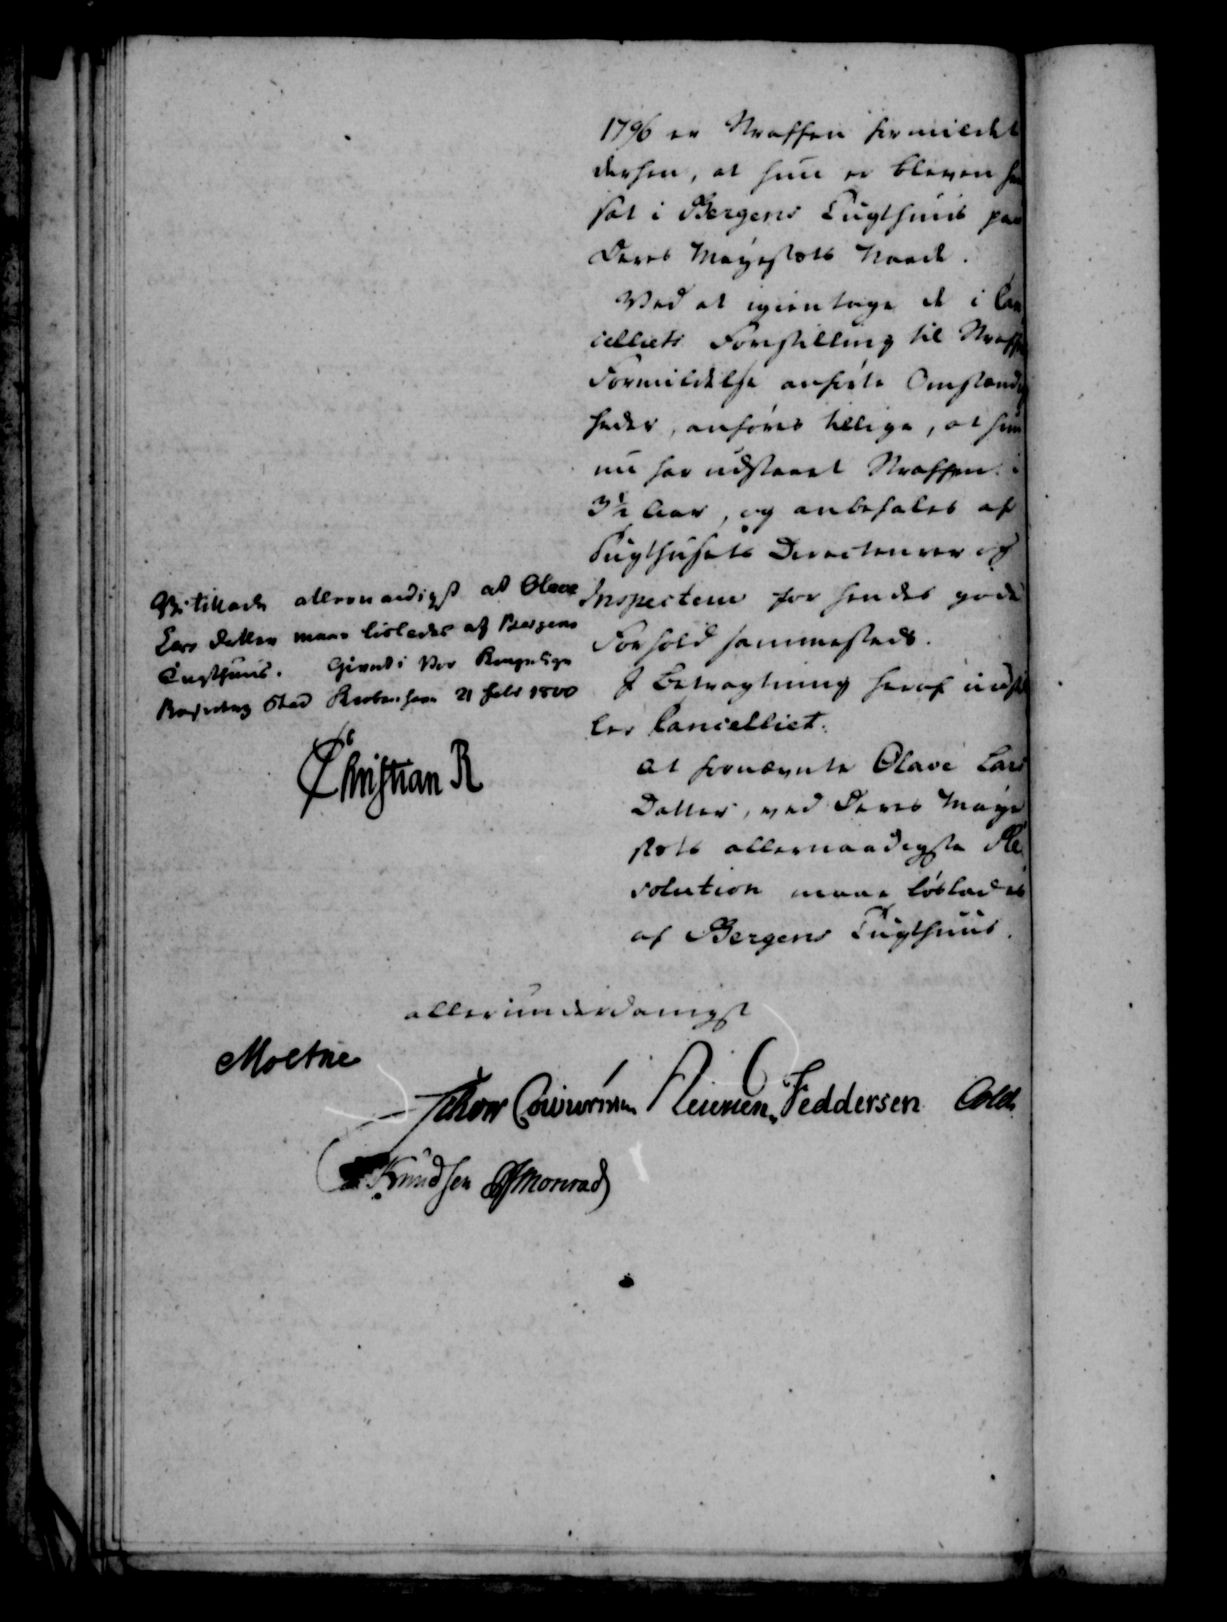 1796 er Straffen formildet
derhen, at hun er bleven hen
sat i Bergens Tugthuus paa
Deres Mayestæts Naade.
Ved at igientage de i Can
celliets Forestilling til Straffens
Formildelse anførte Omstændig
heder, anføres tillige, at hun
nu har udstaaet Straffen i
3½ Aar, og anbefales af
Tugthusets Directeurer og
Inspecteur for hendes gode
Forhold sammesteds.
I Betragtning heraf indstil
ler Cancelliet:
at fornævnte Olave Lars
Datter, ved Deres Maye
stæts allernaadigste Re
solution maae løslades
af Bergens Tugthuus.
Vi tillade allernaadigst at Olave
Lars datter maae løslades af Bergens
Tugthuus. Givet i Vor Kongelige
Residentz Stad Kiøbenhavn 21 Febr 1800
Christian R
allerunderdanigst
Moltke
Schow Feddersen Cold
Knudsen Monrad